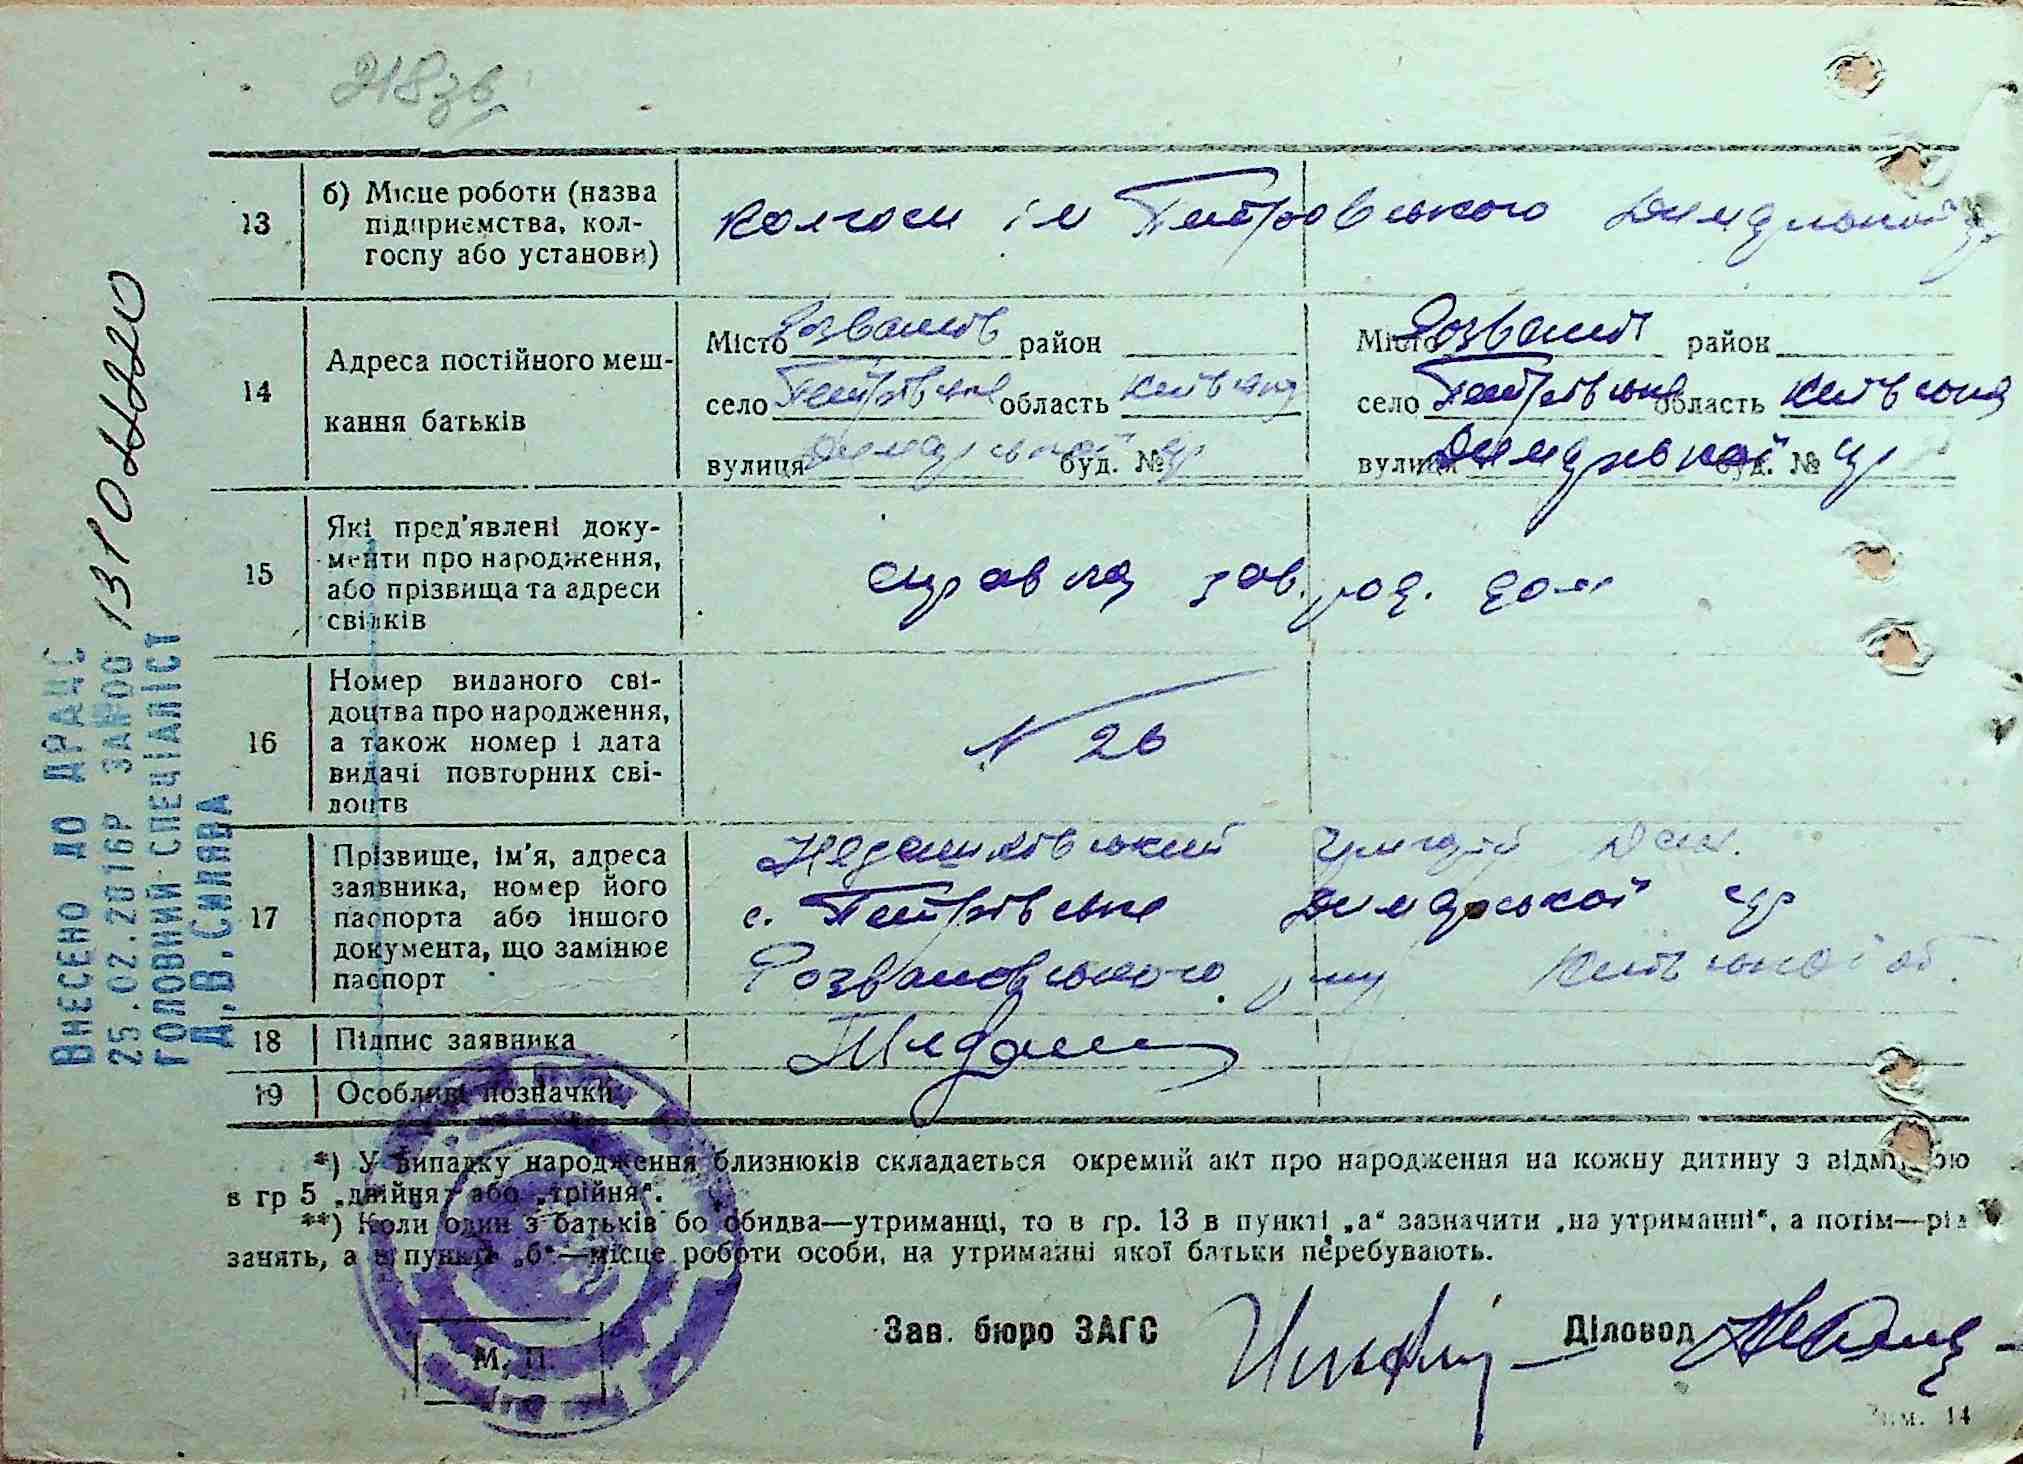 218зв
13 б) Місце роботи (назва підприємства, колгоспу або установи) колгосп ім Петровського
14 Адреса постійного мешкання батьків
Місто Розважів район
село Петрівське область Київська
вулиця Димарської с/р буд. №
Місто Розважів район
село Петрівське область Київська
вулиця Димарської с/р буд. №
15 Які пред'явлені документи про народження, або прізвища та адреси свідків справка зав. род. дом
16 Номер виданого свідоцтва про народження, а також номер і дата видачі повторних свідоцтв № 26
17 Прізвище, ім'я, адреса заявника, номер його паспорта або іншого документа, що замінює паспорт
с. Петрівське Димарської с/р
Розважівського р-ну Київської об.
18 Підпис заявника
19 Особливі позначки
*) У випадку народження близнюків складається окремий акт про народження на кожну дитину з відміткою
в гр 5 „двійня" або „трійня".
**) Коли один з батьків бо обидва—утриманці, то в гр. 13 в пункті „а" зазначити „на утриманні", а потім—рід
занять, а в пункті „б"—місце роботи особи, на утриманні якої батьки перебувають.
Зав. бюро ЗАГС Діловод
М. П.
Внесено до ДРАЦС
25.02.2016р за №00 1310
головний спеціаліст
Д.В.Силява